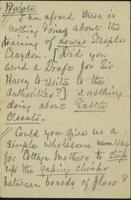 Private
I am afraid there is
nothing doing about the
draining of Lower Steeple
Claydon. Did you
send a Draft for Sir
Harry to write to the
Authorities?] 2 nothing
doing about Earth
Closets.
Could you give us a
simple wholesome way
for Cottage Mothers to stop
up the gaping chinks
between boards of floor?